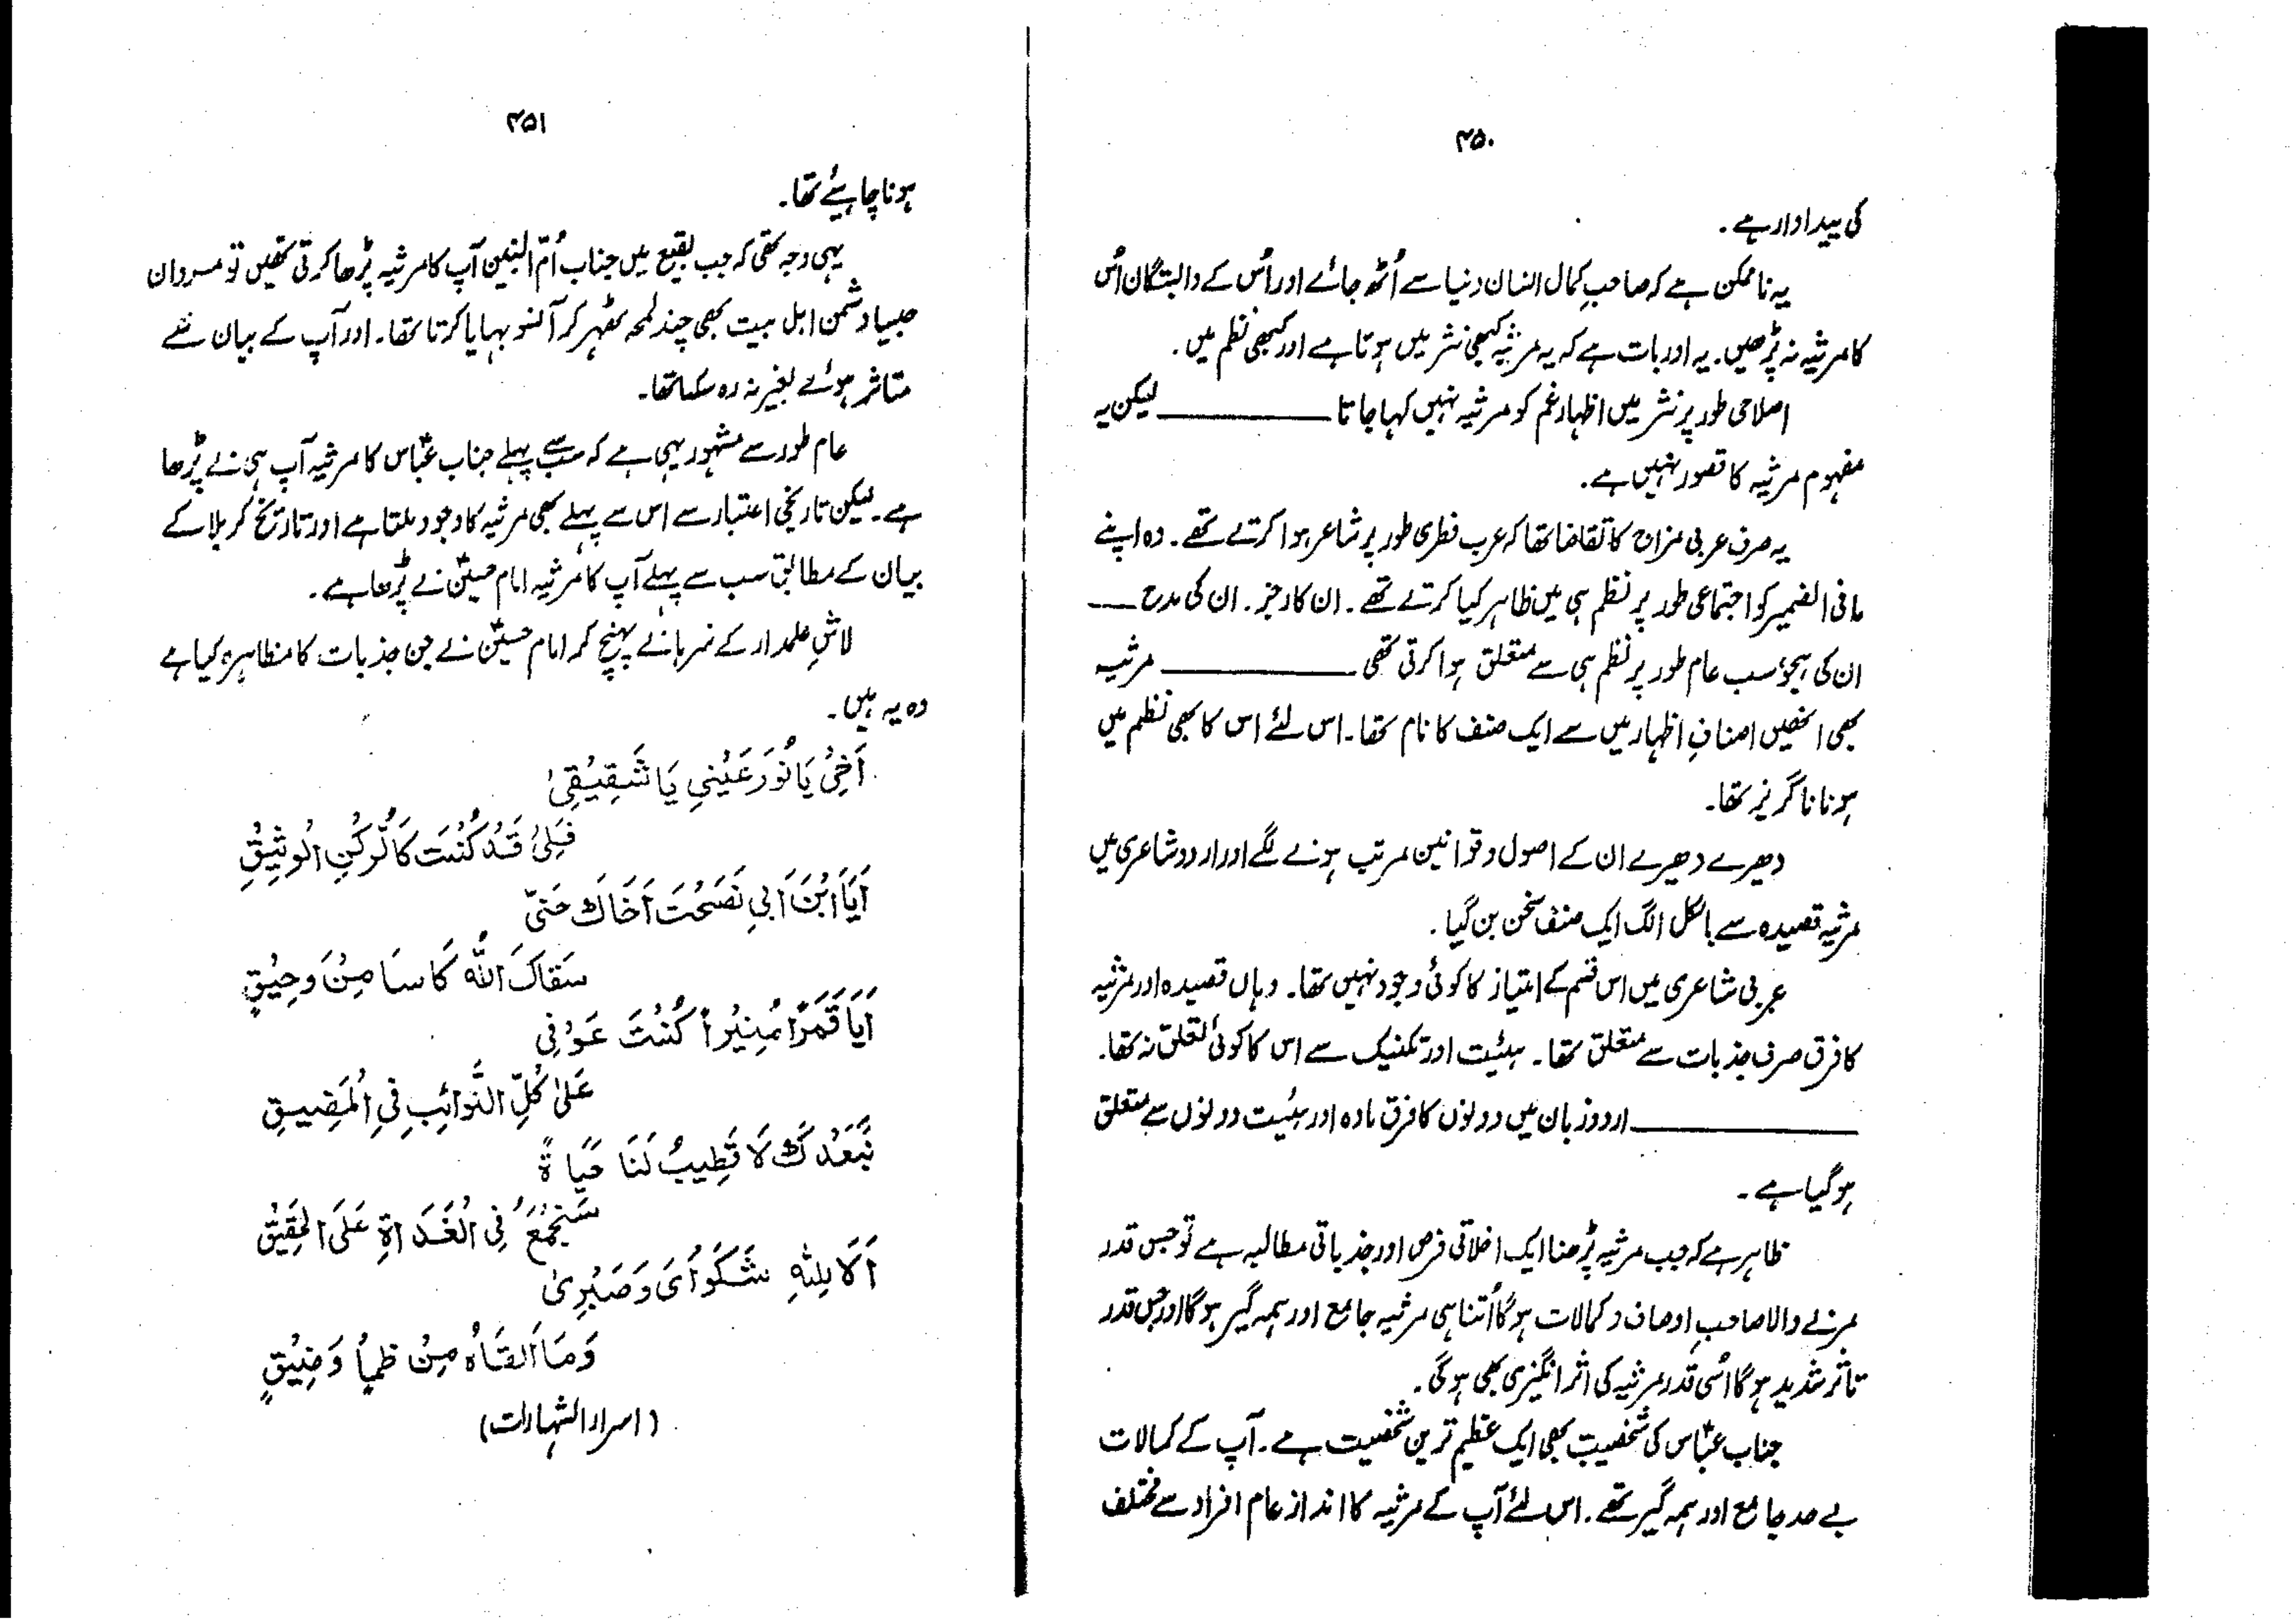 ۴۵۰
کی پیداوار ہے۔
یہ ناممکن ہے کہ صاحبِ کمال انسان دنیا سے اُٹھ جائے اور اُس کے وابستگان اُس
کا مرثیہ نہ پڑھیں۔ یہ اور بات ہے کہ یہ مرثیہ کبھی نثر میں ہوتا ہے اور کبھی نظم میں۔
اصلاحی طور پر نثر میں اظہارِ غم کو مرثیہ نہیں کہا جاتا ــــــــــــ لیکن یہ
مفہوم مرثیہ کا قصور نہیں ہے۔
یہ صرف عربی مزاج کا تقاضا تھا کہ عرب فطری طور پر شاعر ہوا کرتے تھے۔ وہ اپنے
مافی الضمیر کو اجتماعی طور پر نظم ہی میں ظاہر کیا کرتے تھے۔ ان کا رجز۔ ان کی مدح ــــ
ان کی ہجو سب عام طور پر نظم ہی سے متعلق ہوا کرتی تھی ــــــــــــ مرثیہ
بھی انھیں اصنافِ اظہار میں سے ایک صنف کا نام تھا۔ اس لئے اس کا بھی نظم میں
ہونا ناگزیر تھا۔
دھیرے دھیرے ان کے اصول و قوانین مرتب ہونے لگے اور اردو شاعری میں
مرثیہ قصیدہ سے بالکل الگ ایک صنف سخن بن گیا۔
عربی شاعری میں اس قسم کے امتیاز کا کوئی وجود نہیں تھا۔ وہاں قصیدہ اور مرثیہ
کا فرق صرف جذبات سے متعلق تھا۔ ہیئت اور تکنیک سے اس کا کوئی تعلق نہ تھا۔
ــــــــــــ اردو زبان میں دونوں کا فرق مادہ اور ہیئت دونوں سے متعلق
ہو گیا ہے۔
ظاہر ہے کہ جب مرثیہ پڑھنا ایک اخلاقی فرض اور جذباتی مطالبہ ہے تو جس قدر
مرنے والا صاحبِ اوصاف و کمالات ہوگا اُتنا ہی مرثیہ جامع اور ہمہ گیر ہوگا اور جس قدر
تاثر شدید ہوگا اُسی قدر مرثیہ کی اثر انگیزی بھی ہوگی۔
جناب عباسؑ کی شخصیت بھی ایک عظیم ترین شخصیت ہے۔ آپ کے کمالات
بے حد جامع اور ہمہ گیر تھے۔ اس لئے آپ کے مرثیہ کا انداز عام افراد سے مختلف
۴۵۱
ہونا چاہیئے تھا۔
یہی وجہ تھی کہ جب بقیع میں جناب اُمّ البنین آپ کا مرثیہ پڑھا کرتی تھیں تو مروان
جیسا دشمن اہل بیت بھی چند لمحہ ٹھہر کر آنسو بہایا کرتا تھا۔ اور آپ کے بیان سے
متاثر ہوئے بغیر نہ رہ سکتا تھا۔
عام طور سے مشہور یہی ہے کہ سب سے پہلے جناب عباسؑ کا مرثیہ آپ ہی نے پڑھا
ہے۔ لیکن تاریخی اعتبار سے اس سے پہلے بھی مرثیہ کا وجود ملتا ہے اور تاریخ کربلا کے
بیان کے مطابق سب سے پہلے آپ کا مرثیہ امام حسینؑ نے پڑھا ہے۔
لاشِ علمدار کے سرہانے پہنچ کر امام حسینؑ نے جن جذبات کا مظاہرہ کیا ہے
وہ یہ ہیں۔
اَخِیْ یَا نُوْرَ عَیْنِیْ یَا شَقِیْقِیْ
فَلِیْ قَدْ کُنْتَ کَالرُّکْنِ الْوَثِیْقِ
اَیَا ابْنَ اَبِیْ نَصَحْتَ اَخَاکَ حَتّٰی
سَقَاکَ اللّٰہُ کَاسَا مِنْ رَحِیْقٍ
اَیَا قَمَرًا مُنِیْرًا کُنْتَ عَوْنِی
عَلٰی کُلِّ النَّوَائِبِ فِی الْمَضِیْقِ
فَبَعْدَکَ لَا تَطِیْبُ لَنَا حَیَاۃً
سَنُجْمَعُ فِی الْغَدَاۃِ عَلَی الْحَقِیْقِ
اَلَا لِلّٰہِ شَکْوَایَ وَصَبْرِیْ
وَمَا اَلْقَاہُ مِنْ ظَمَأٍ وَضِیْقٍ
(اسرار الشہادات)